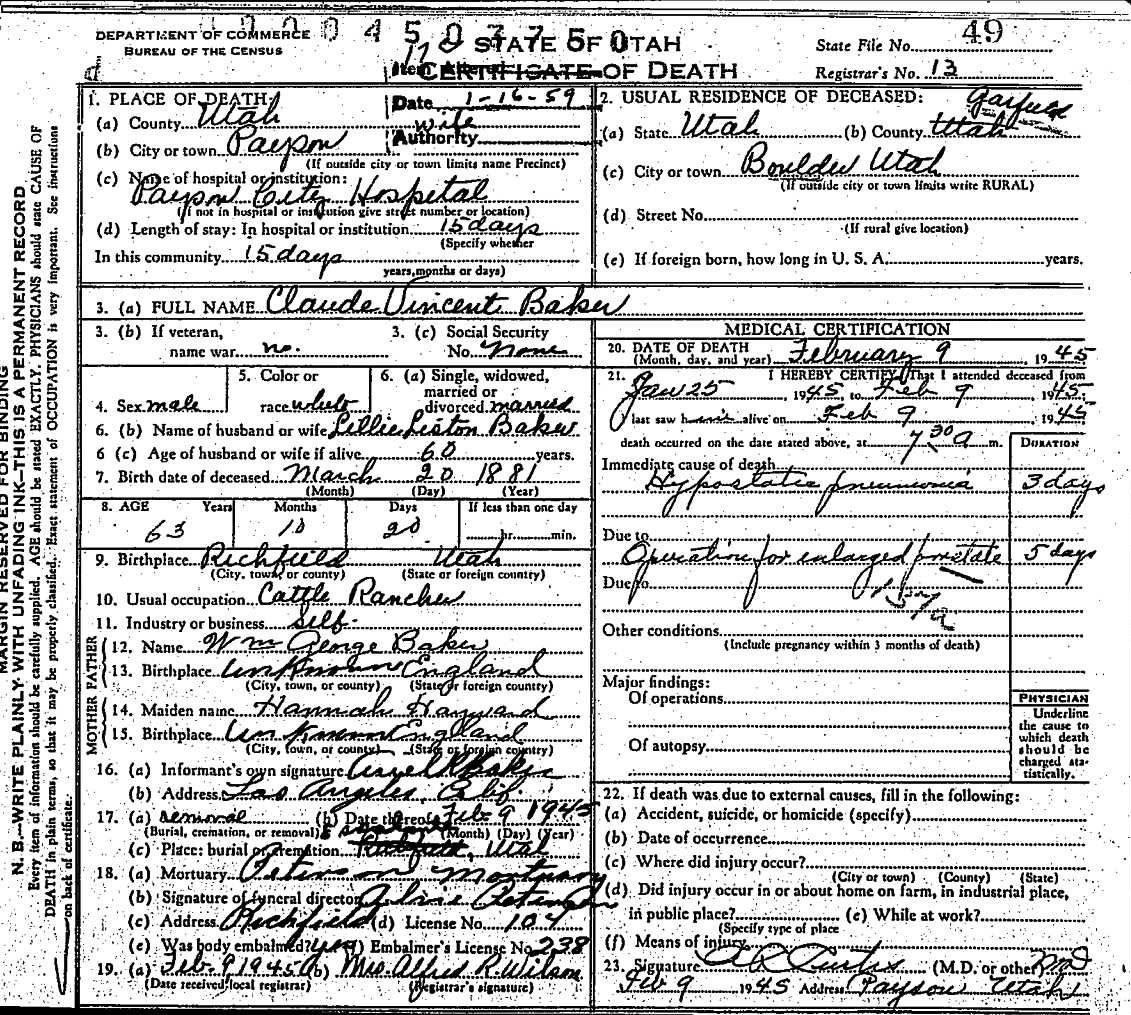 DEPARTMENT OF COMMERCE
BUREAU OF THE CENSUS
STATE OF UTAH
CERTIFICATE OF DEATH
State File No. 49
Registrar's No. 13
d
Date 1-16-59
wife
Authority
1. PLACE OF DEATH
(a) County Utah
(b) City or town Payson
(If outside city or town limits name Precinct)
(c) Name of hospital or institution:
Payson City Hospital
(If not in hospital or institution give street number or location)
(d) Length of stay: In hospital or institution 15 days
(Specify whether
In this community 15 days
years, months or days)
2. USUAL RESIDENCE OF DECEASED:
Garfield
(a) State Utah (b) County Utah
(c) City or town Boulder Utah
(If outside city or town limits write RURAL)
(d) Street No.
(If rural give location)
(e) If foreign born, how long in U. S. A. years.
3. (a) FULL NAME Claude Vincent Baker
3. (b) If veteran,
name war no.
3. (c) Social Security
No. None
4. Sex male
5. Color or
race white
6. (a) Single, widowed,
married or
divorced married
6. (b) Name of husband or wife Lillie Liston Baker
6 (c) Age of husband or wife if alive 60 years.
7. Birth date of deceased March 20 1881
(Month) (Day) (Year)
8. AGE Years Months Days If less than one day
63 10 20 hr. min.
9. Birthplace Richfield Utah
(City, town, or county) (State or foreign country)
10. Usual occupation Cattle Rancher
11. Industry or business Self-
FATHER
12. Name Wm George Baker
13. Birthplace Unknown England
(City, town, or county) (State or foreign country)
MOTHER
14. Maiden name Hannah Hayward
15. Birthplace Unknown England
(City, town, or county) (State or foreign country)
16. (a) Informant's own signature Baker
(b) Address Los Angeles, Calif.
17. (a) removal (b) Date thereof Feb 9 1945
(Burial, cremation, or removal) (Month) (Day) (Year)
(c) Place: burial or cremation Richfield, Utah
18. (a) Mortuary Peterson Mortuary
(b) Signature of funeral director
(c) Address Richfield (d) License No. 104
(e) Was body embalmed? yes (f) Embalmer's License No 238
19. (a) Feb 9 1945 (b) Mrs. Alfred R. Wilson
(Date received local registrar) (Registrar's signature)
MEDICAL CERTIFICATION
20. DATE OF DEATH
(Month, day, and year) February 9, 1945
21. I HEREBY CERTIFY, That I attended deceased from
Jan 25 1945, to Feb 9 1945.
last saw him alive on Feb 9 1945
death occurred on the date stated above, at 7 30 a m.
DURATION
Immediate cause of death
Hypostatic pneumonia 3 days
Due to
Operation for enlarged prostate 5 days
Due to
137a
Other conditions
(Include pregnancy within 3 months of death)
Major findings:
Of operations
Of autopsy
PHYSICIAN
Underline
the cause to
which death
should be
charged sta-
tistically.
22. If death was due to external causes, fill in the following:
(a) Accident, suicide, or homicide (specify)
(b) Date of occurrence
(c) Where did injury occur?
(City or town) (County) (State)
(d) Did injury occur in or about home on farm, in industrial place,
in public place? (e) While at work?
(Specify type of place
(f) Means of injury
23. Signature Curtis (M.D. or other) MD
Feb 9 1945 Address Payson Utah
MARGIN RESERVED FOR BINDING
N. B.—WRITE PLAINLY WITH UNFADING INK—THIS IS A PERMANENT RECORD
Every item of information should be carefully supplied. AGE should be stated EXACTLY. PHYSICIANS should state CAUSE OF
DEATH in plain terms, so that it may be properly classified. Exact statement of OCCUPATION is very important. See instructions
on back of certificate.